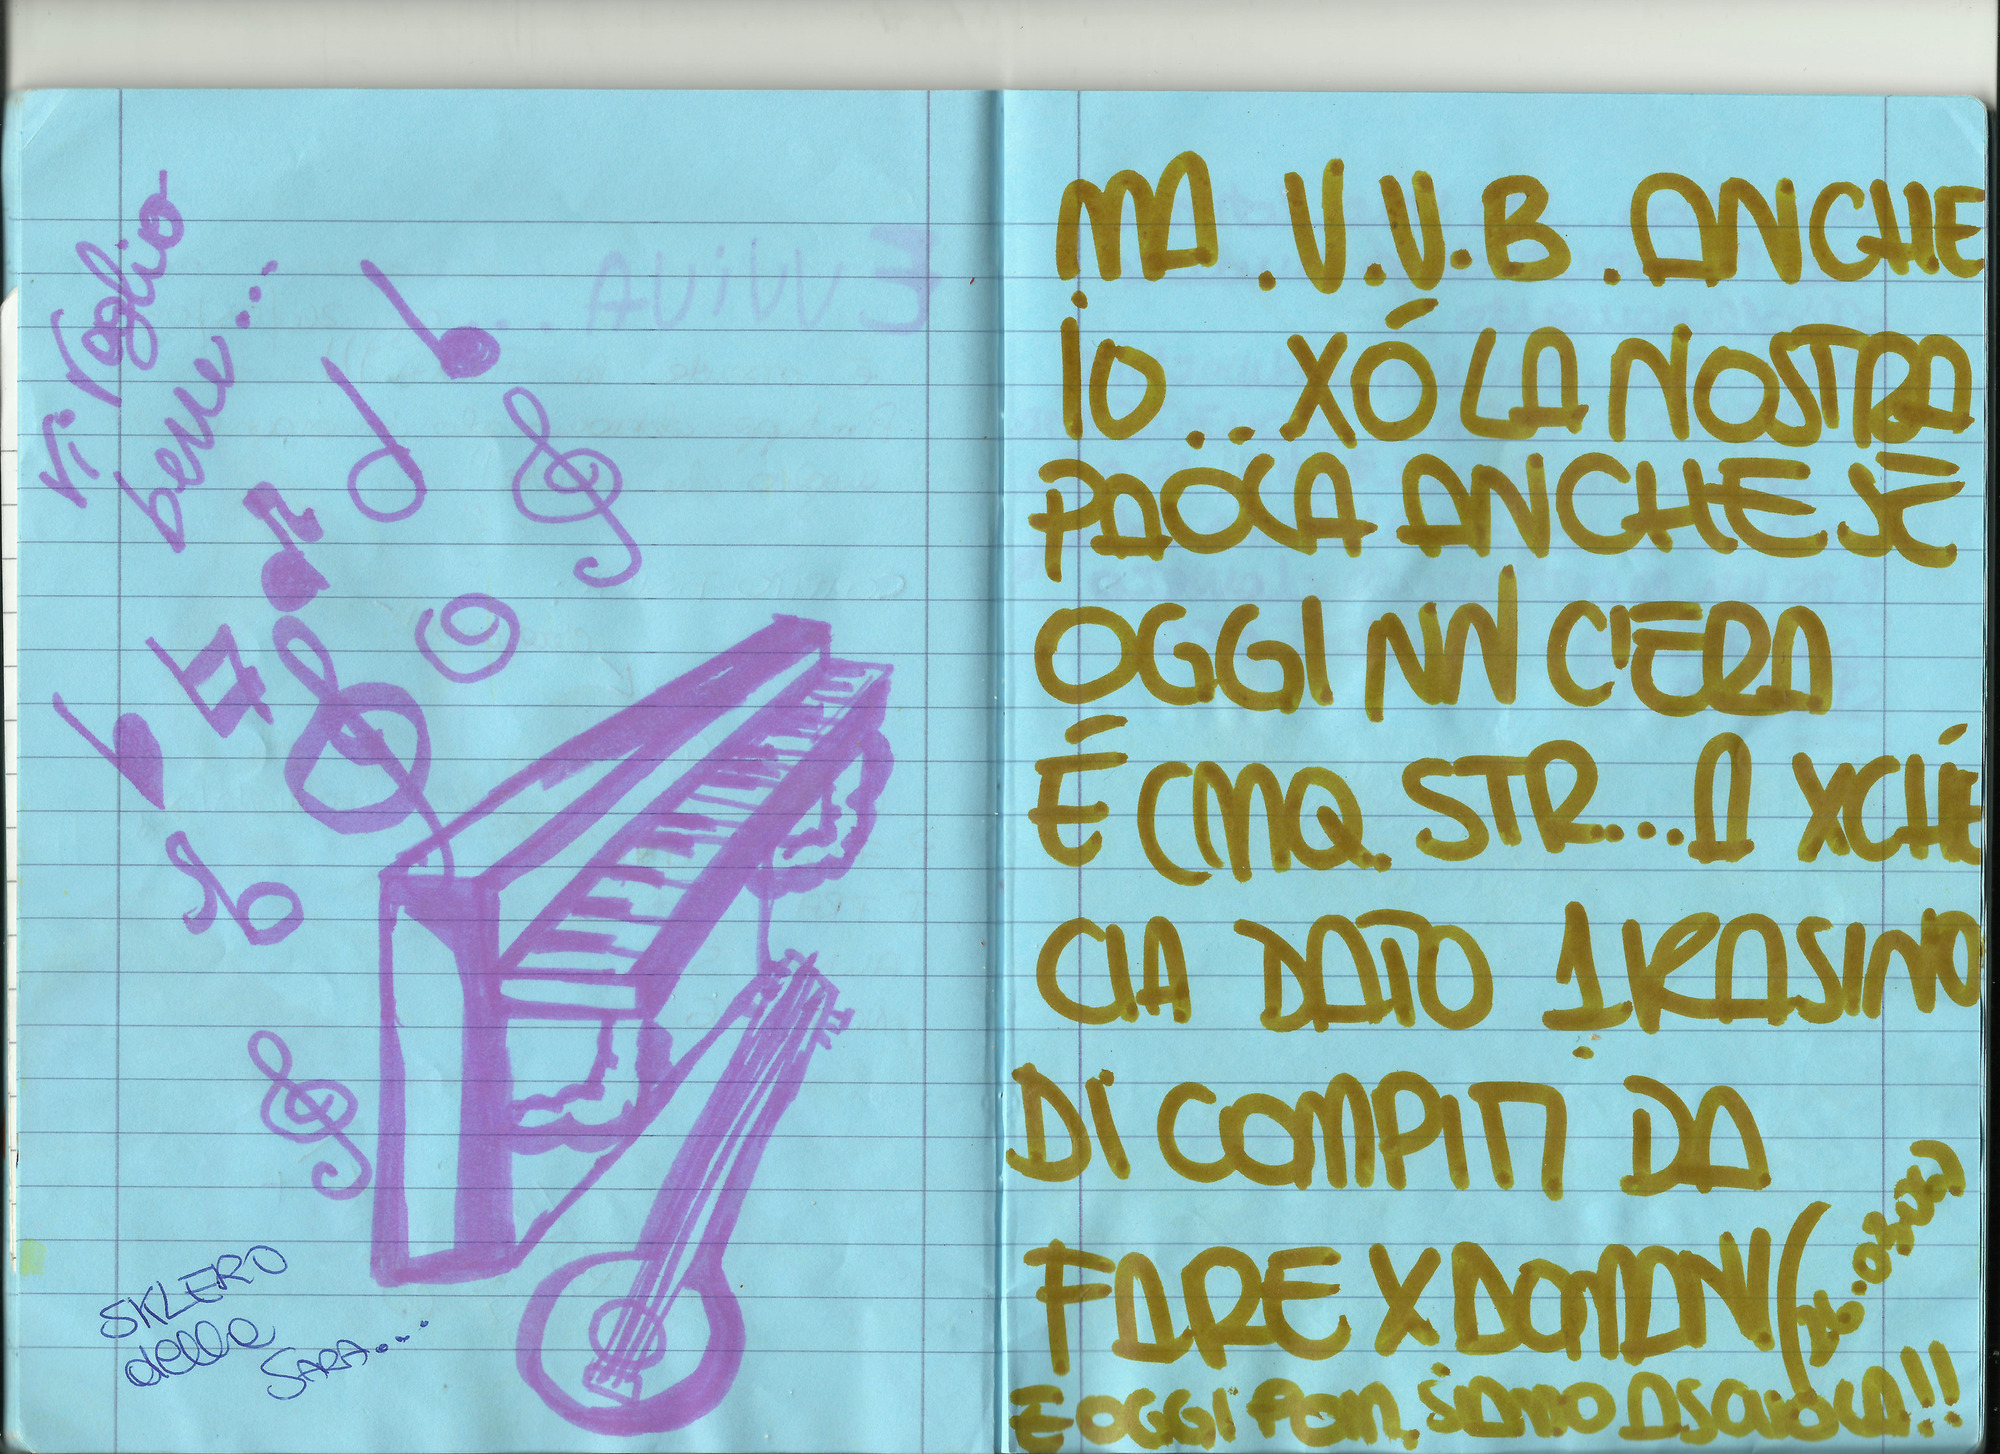 Vi voglio
bene...
SKLERO
della
SARA....
MA .V.V.B. ANCHE
IO... XÓ LA NOSTRA
PAOLA ANCHE SE
OGGI NN C'ERA
É CMQ STR....A XCHÉ
CIA DATO 1 KASINO
DI COMPITI DA
FARE X DOMANI (
E OGGI POM. SIAMO A SCUOLA!!